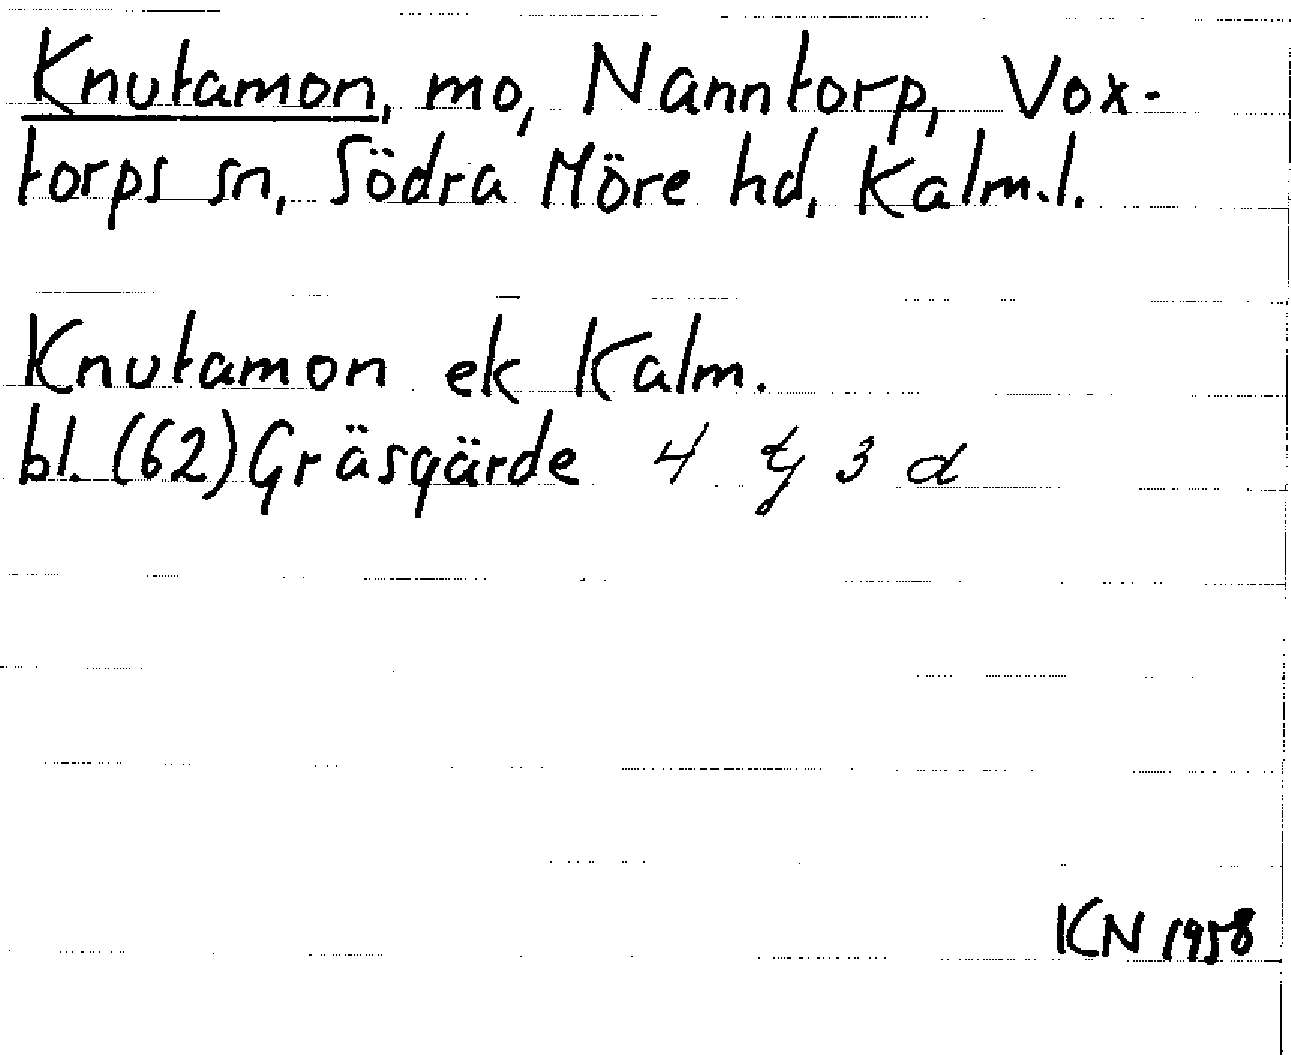 Knutamon, mo, Nanntorp, Vox-
torps sn, Södra Möre hd, Kalm.l.
Knutamon ek Kalm.
bl. (62) Gräsgärde 4 3 d
KN 1958